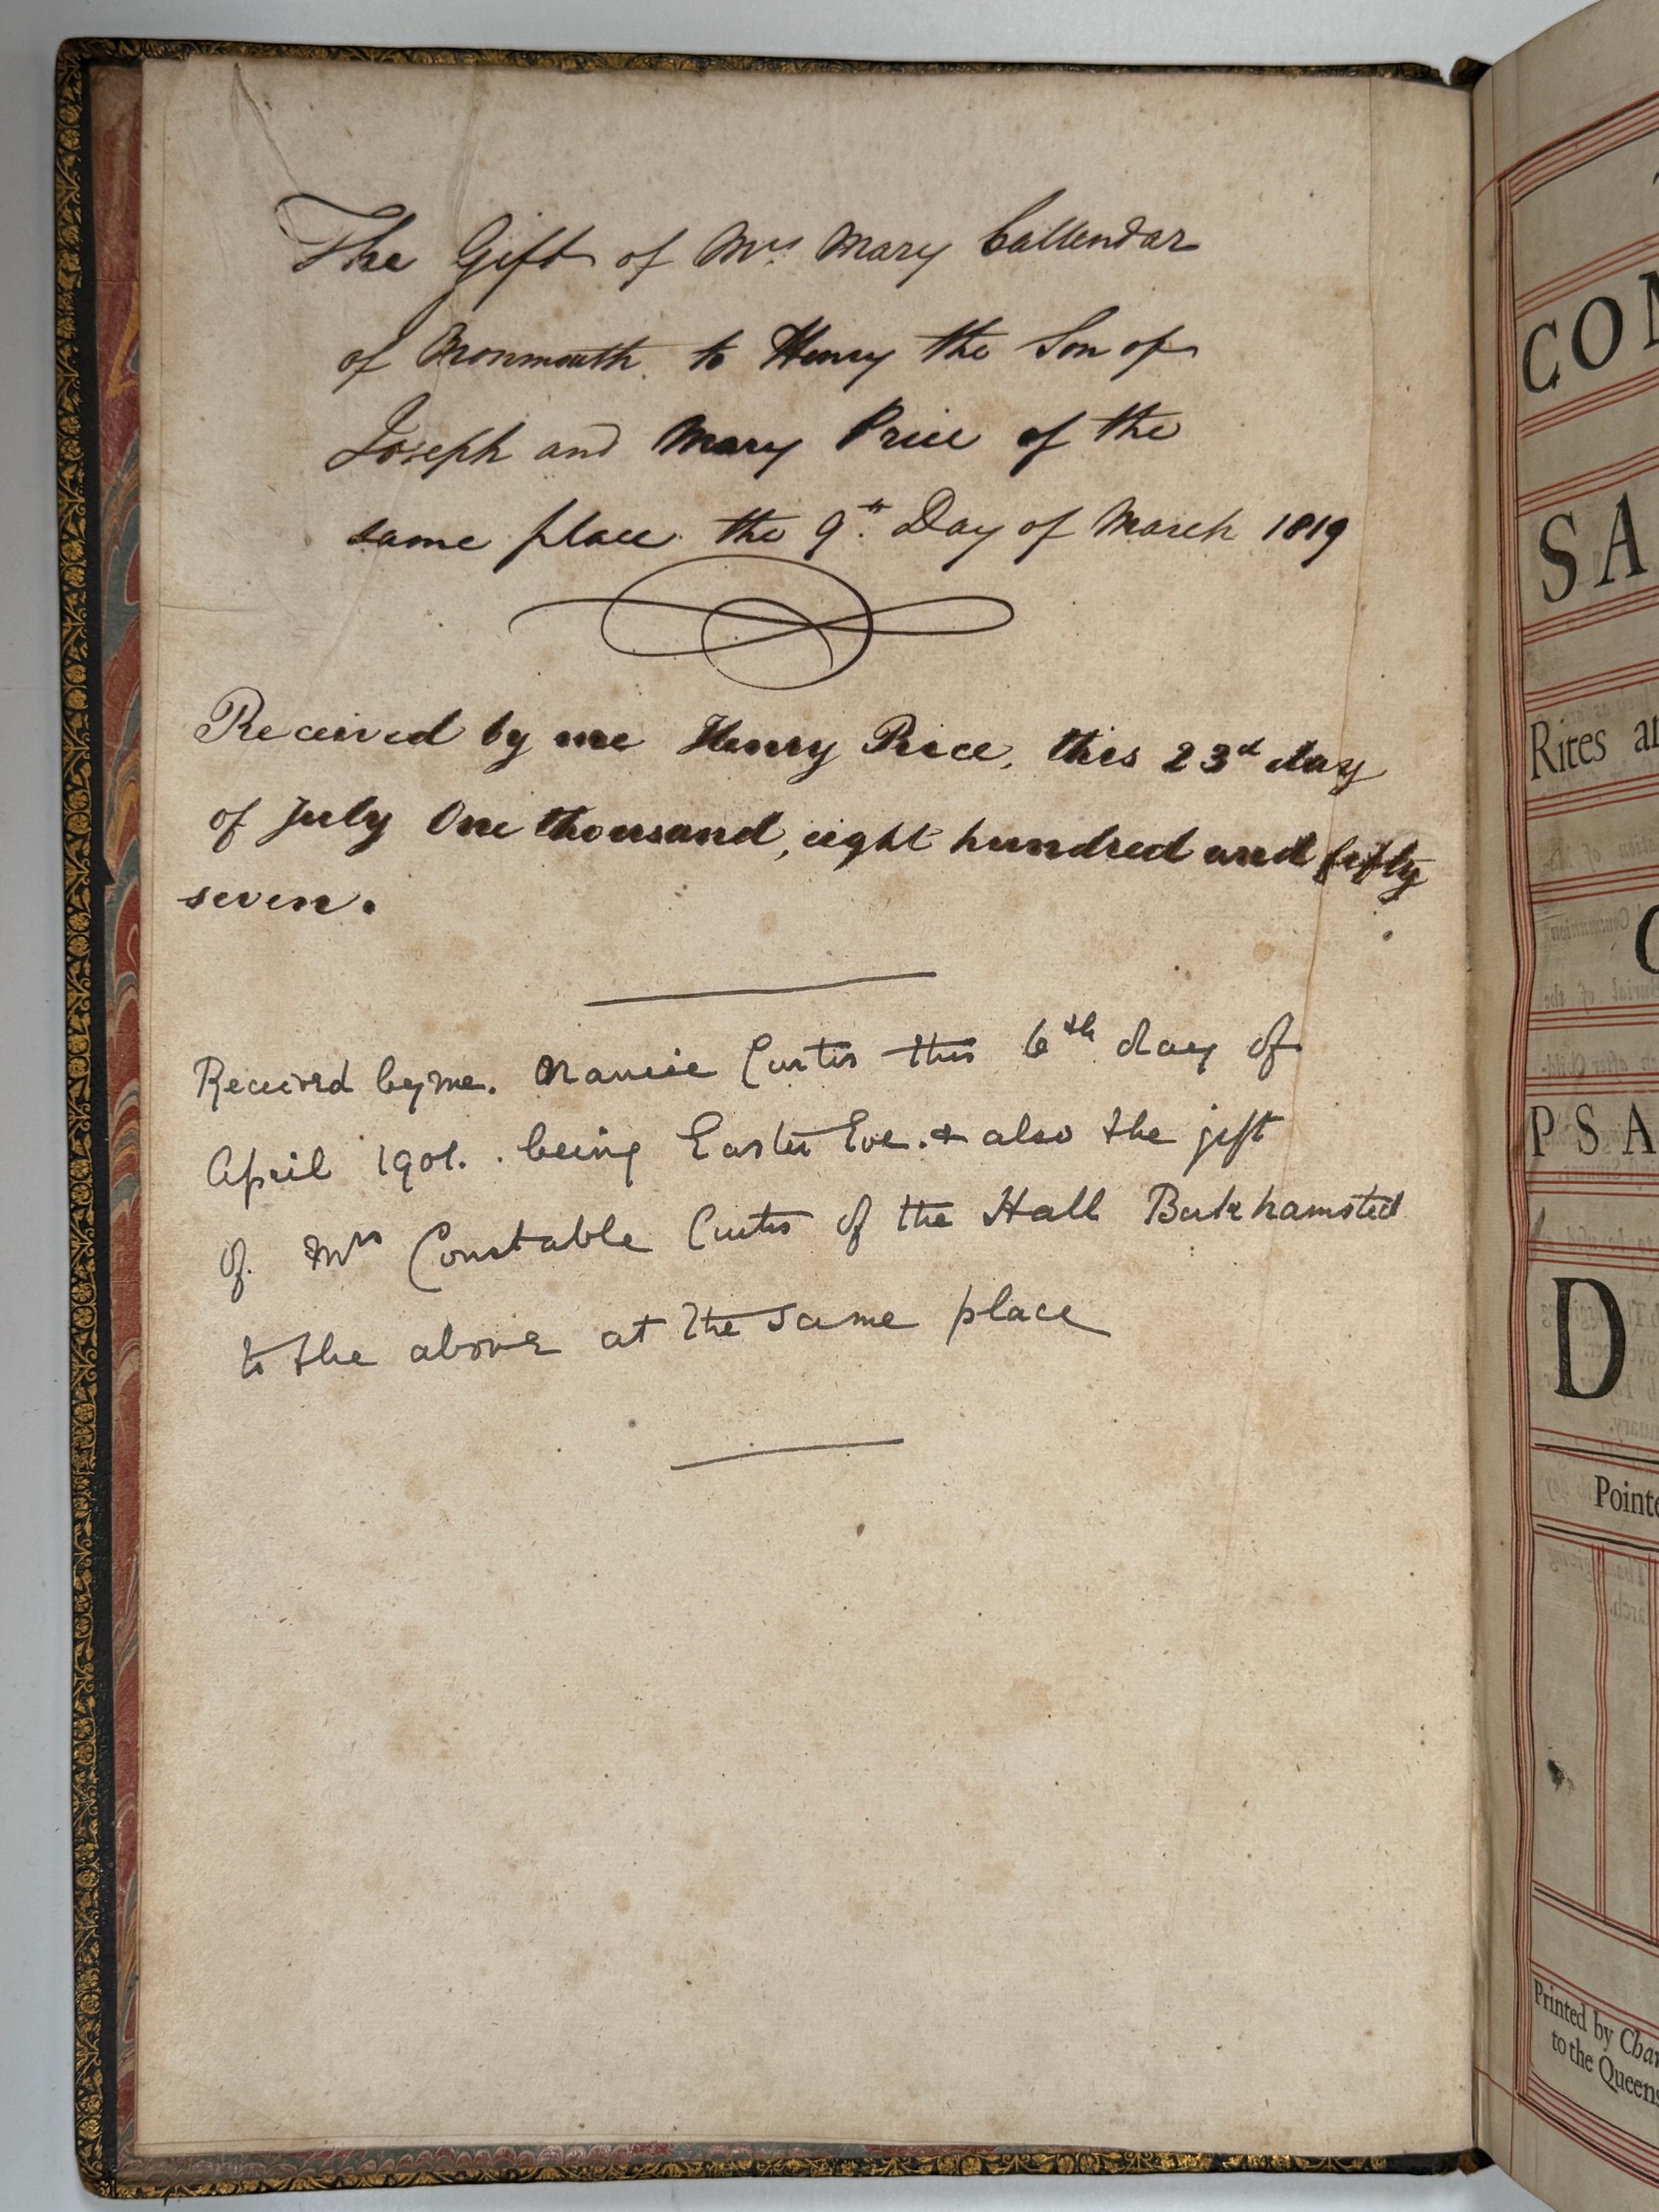 The Gift of Mrs. Mary Callendar
of Monmouth to Henry the Son of
Joseph and Mary Price of the
same place the 9th. Day of March 1819
Received by me Henry Price, this 23d day
of July One thousand, eight hundred and fifty
seven.
Received by me. Nancie Curtis this 6th day of
April 1901. being Easter Eve. & also the gift
of Mrs Constable Curtis of the Hall Berkhamsted
to the above at the same place
CO
SA
Rites a
PSA
D
Pointe
Printed by Cha
to the Queens